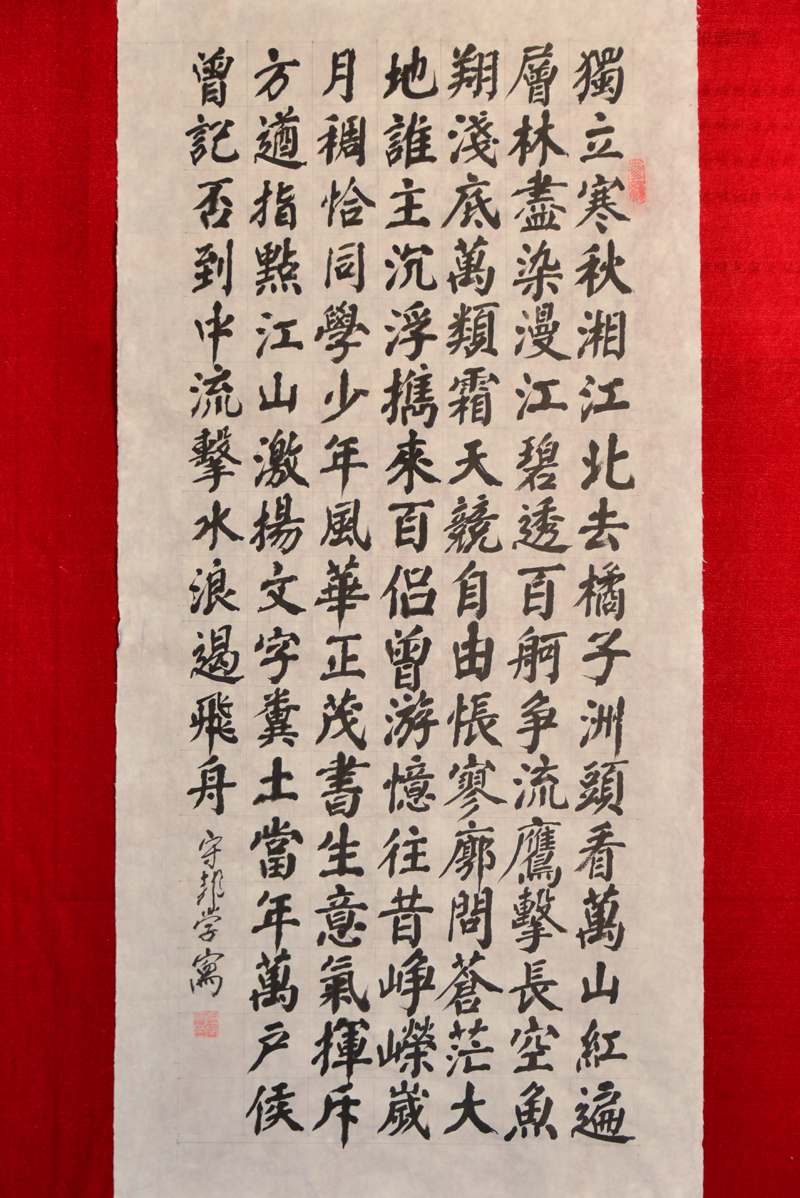 獨立寒秋湘江北去橘子洲頭看萬山紅遍
層林盡染漫江碧透百舸争流鷹擊長空魚
翔淺底萬類霜天競自由悵寥廓問蒼茫大
地誰主沉浮擕來百侣曾游憶往昔崢嶸歲
月稠恰同學少年風華正茂書生意氣揮斥
方遒指點江山激揚文字糞土當年萬户侯
曾記否到中流擊水浪遏飛舟
守邦学寫